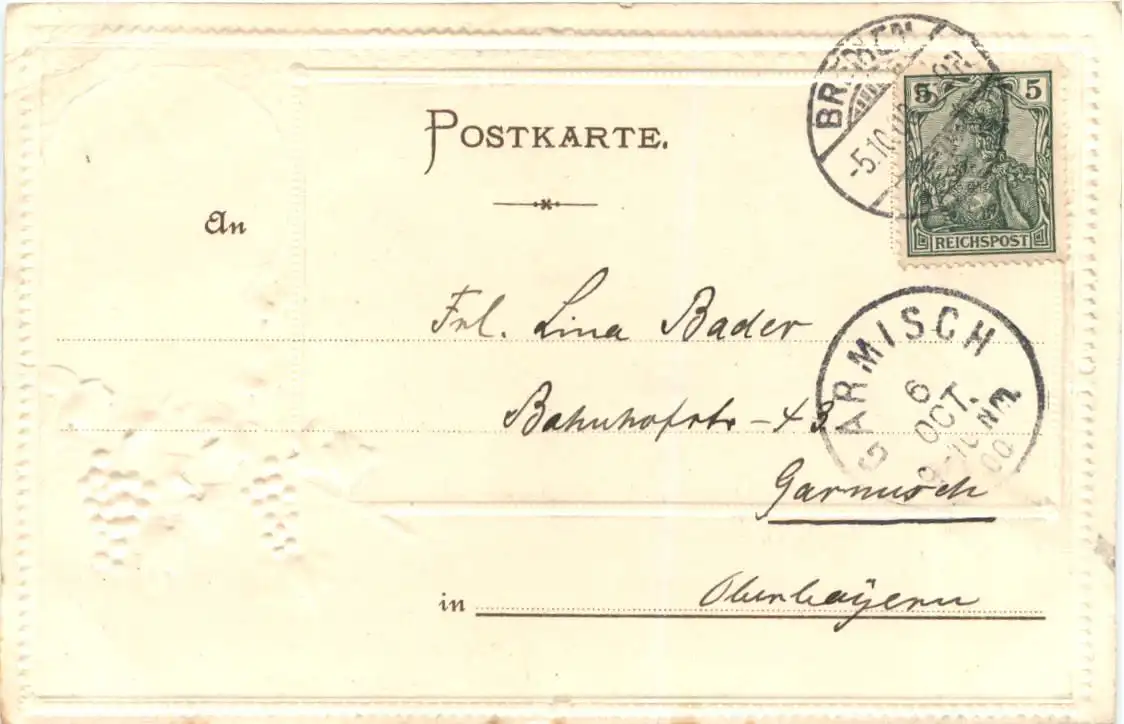 POSTKARTE.
BREMEN
-5.10.
5 5
REICHSPOST
An
Frl. Lina Bader
Bahnhofstr - 43
Garmisch
GARMISCH
6
OCT.
9-10 NM.
00
in Oberbayern